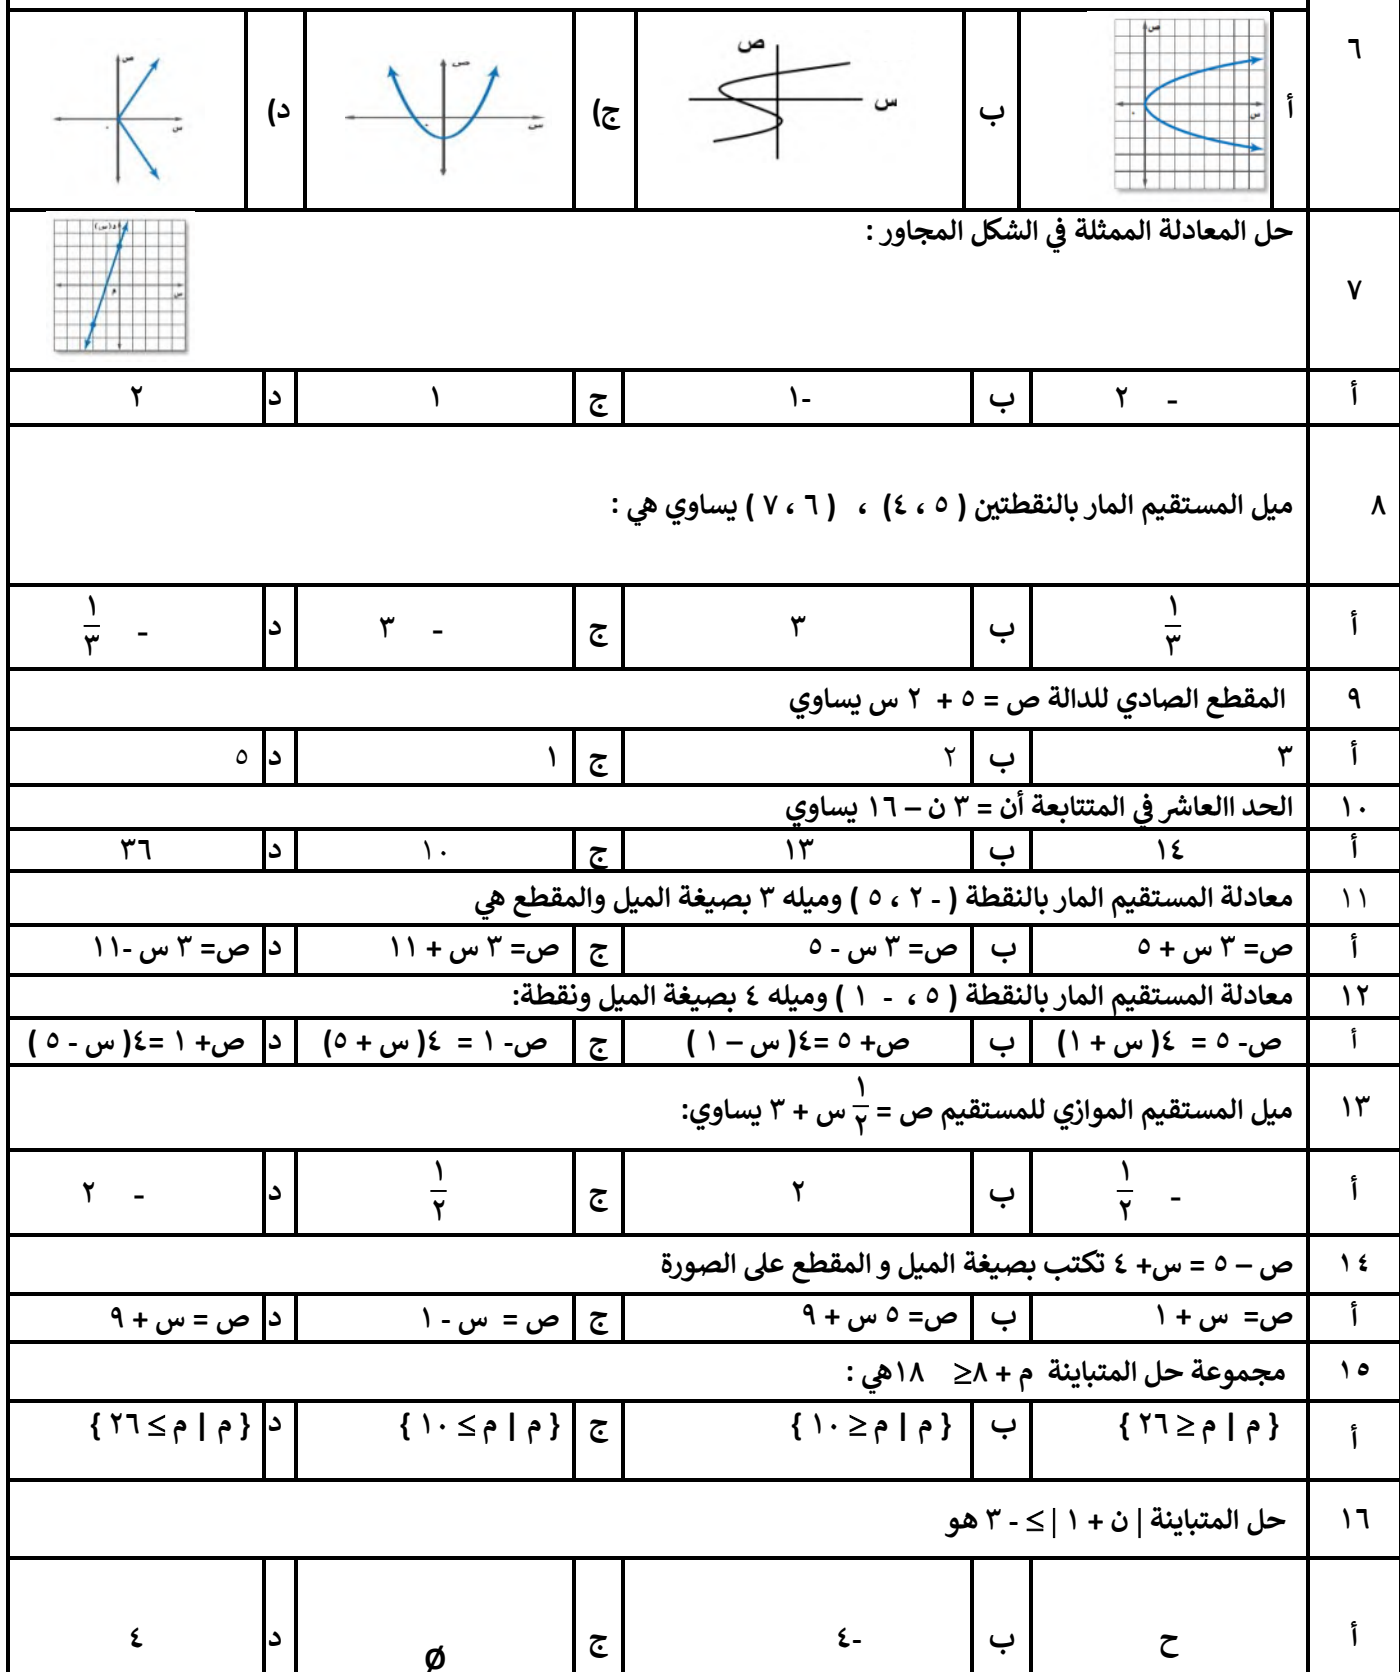 ٦
أ
ص
س
ب
ص
س
ج)
ص
س
د)
ص
س
٧
حل المعادلة الممثلة في الشكل المجاور :
د(س)
م
س
أ - ٢ ب -١ ج ١ د ٢
٨
ميل المستقيم المار بالنقطتين ( ٥ ، ٤) ، ( ٦ ، ٧ ) يساوي هي :
أ ١/٣ ب ٣ ج - ٣ د - ١/٣
٩ المقطع الصادي للدالة ص = ٥ + ٢ س يساوي
أ ٣ ب ٢ ج ١ د ٥
١٠ الحد االعاشر في المتتابعة أن = ٣ ن – ١٦ يساوي
أ ١٤ ب ١٣ ج ١٠ د ٣٦
١١ معادلة المستقيم المار بالنقطة ( - ٢ ، ٥ ) وميله ٣ بصيغة الميل والمقطع هي
أ ص= ٣ س + ٥ ب ص= ٣ س - ٥ ج ص= ٣ س + ١١ د ص= ٣ س -١١
١٢ معادلة المستقيم المار بالنقطة ( ٥ ، - ١ ) وميله ٤ بصيغة الميل ونقطة:
أ ص- ٥ = ٤( س + ١) ب ص+ ٥ =٤( س – ١ ) ج ص- ١ = ٤( س + ٥) د ص+ ١ =٤( س - ٥ )
١٣ ميل المستقيم الموازي للمستقيم ص = ١/٢ س + ٣ يساوي:
أ - ١/٢ ب ٢ ج ١/٢ د - ٢
١٤ ص – ٥ = س+ ٤ تكتب بصيغة الميل و المقطع على الصورة
أ ص= س + ١ ب ص= ٥ س + ٩ ج ص = س - ١ د ص = س + ٩
١٥ مجموعة حل المتباينة م + ٨≥ ١٨هي :
أ { م | م ≥ ٢٦ } ب { م | م ≥ ١٠ } ج { م | م ≤ ١٠ } د { م | م ≤ ٢٦ }
١٦ حل المتباينة | ن + ١ | ≤ - ٣ هو
أ ح ب -٤ ج Ø د ٤